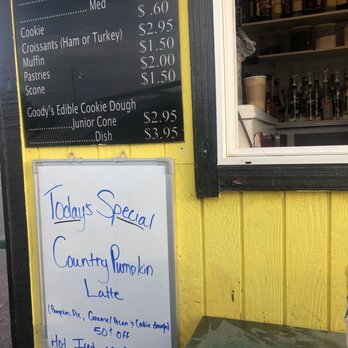 ...................Med
Cookie $ .60
Croissants (Ham or Turkey) $2.95
Muffin $1.50
Pastries $2.00
Scone $1.50
Goody's Edible Cookie Dough
...............Junior Cone $2.95
.......................Dish $3.95
Today's Special
Country Pumpkin
Latte
(Pumpkin Pie, Caramel Pecan & Cookie dough)
50¢ off
Hot Iced